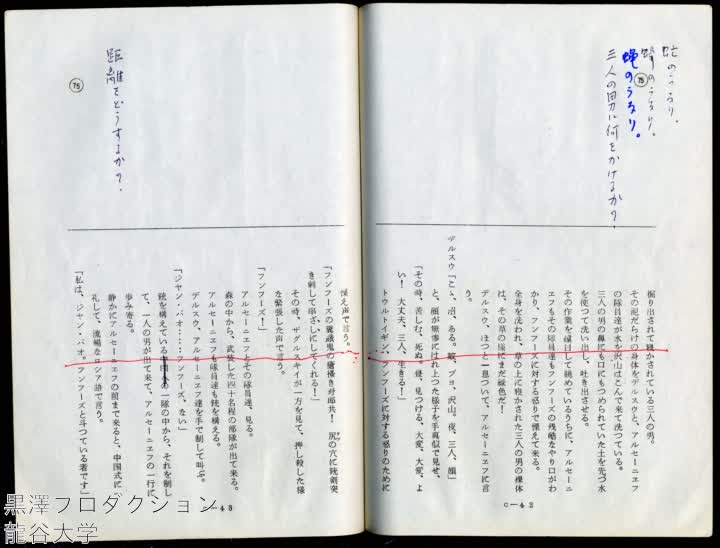 虻のうなり。
蜂のうなり。
蝿のうなり。
75
三人の男に何をかけるか?
掘り出されて寝かされている三人の男。
その泥だらけの身体をデルスウと、アルセーニエフ
の隊員達が水を沢山はこんで来て洗つている。
三人の男の鼻にも口にもつめられていた土を先づ水
を使つて洗い出し、吐き出させる。
その作業を遠目して眺めているうちに、アルセーニ
エフもその隊員達もフンフーズの残酷なやり口がわ
かり、フンフーズに対する怒りで慄えて来る。
全身を洗われ、草の上に寝かされた三人の男の裸体
は、その草の様にまだ緑色だ!
デルスウ、ほつと一息ついて、アルセーニエフに言
う。
デルスウ「こゝ、沼、ある。蚊、ブヨ、沢山。夜、三人、顔」
と、顔が無惨にはれ上つた様子を手真似で見せ、
「その時、苦しむ、死ぬ。俺、見つける、大変、大変、よ
い!大丈夫、三人、生きる!」
トウルトイギン、フンフーズに対する怒りのために
C—42
距離をどうするか?
75
慄え声で言う。
「フンフーズの
き刺して串ざしにしてくれる!」
その時、ザグルスキイが一方を見て、押し殺した様
な緊張した声で言う。
「フンフーズ!」
アルセーニエフとその隊員達、見る。
森の中から、武装した四十名程の部隊が出て来る。
アルセーニエフも隊員達も銃を構える。
デルスウ、アルセーニエフ達を手で制して叫ぶ。
「ジャン・バオ……フンフーズ、ない」
銃を構えている中国人の一隊の中から、それを制し
て、一人の男が出て来て、アルセーニエフの一行に
歩み寄る。
静かにアルセーニエフの前まで来ると、中国式に一
礼して、流暢なロシア語で言う。
「私は、ジャン・バオ。フンフーズと斗つている者です」
C—43
黒澤プロダクション
龍谷大学